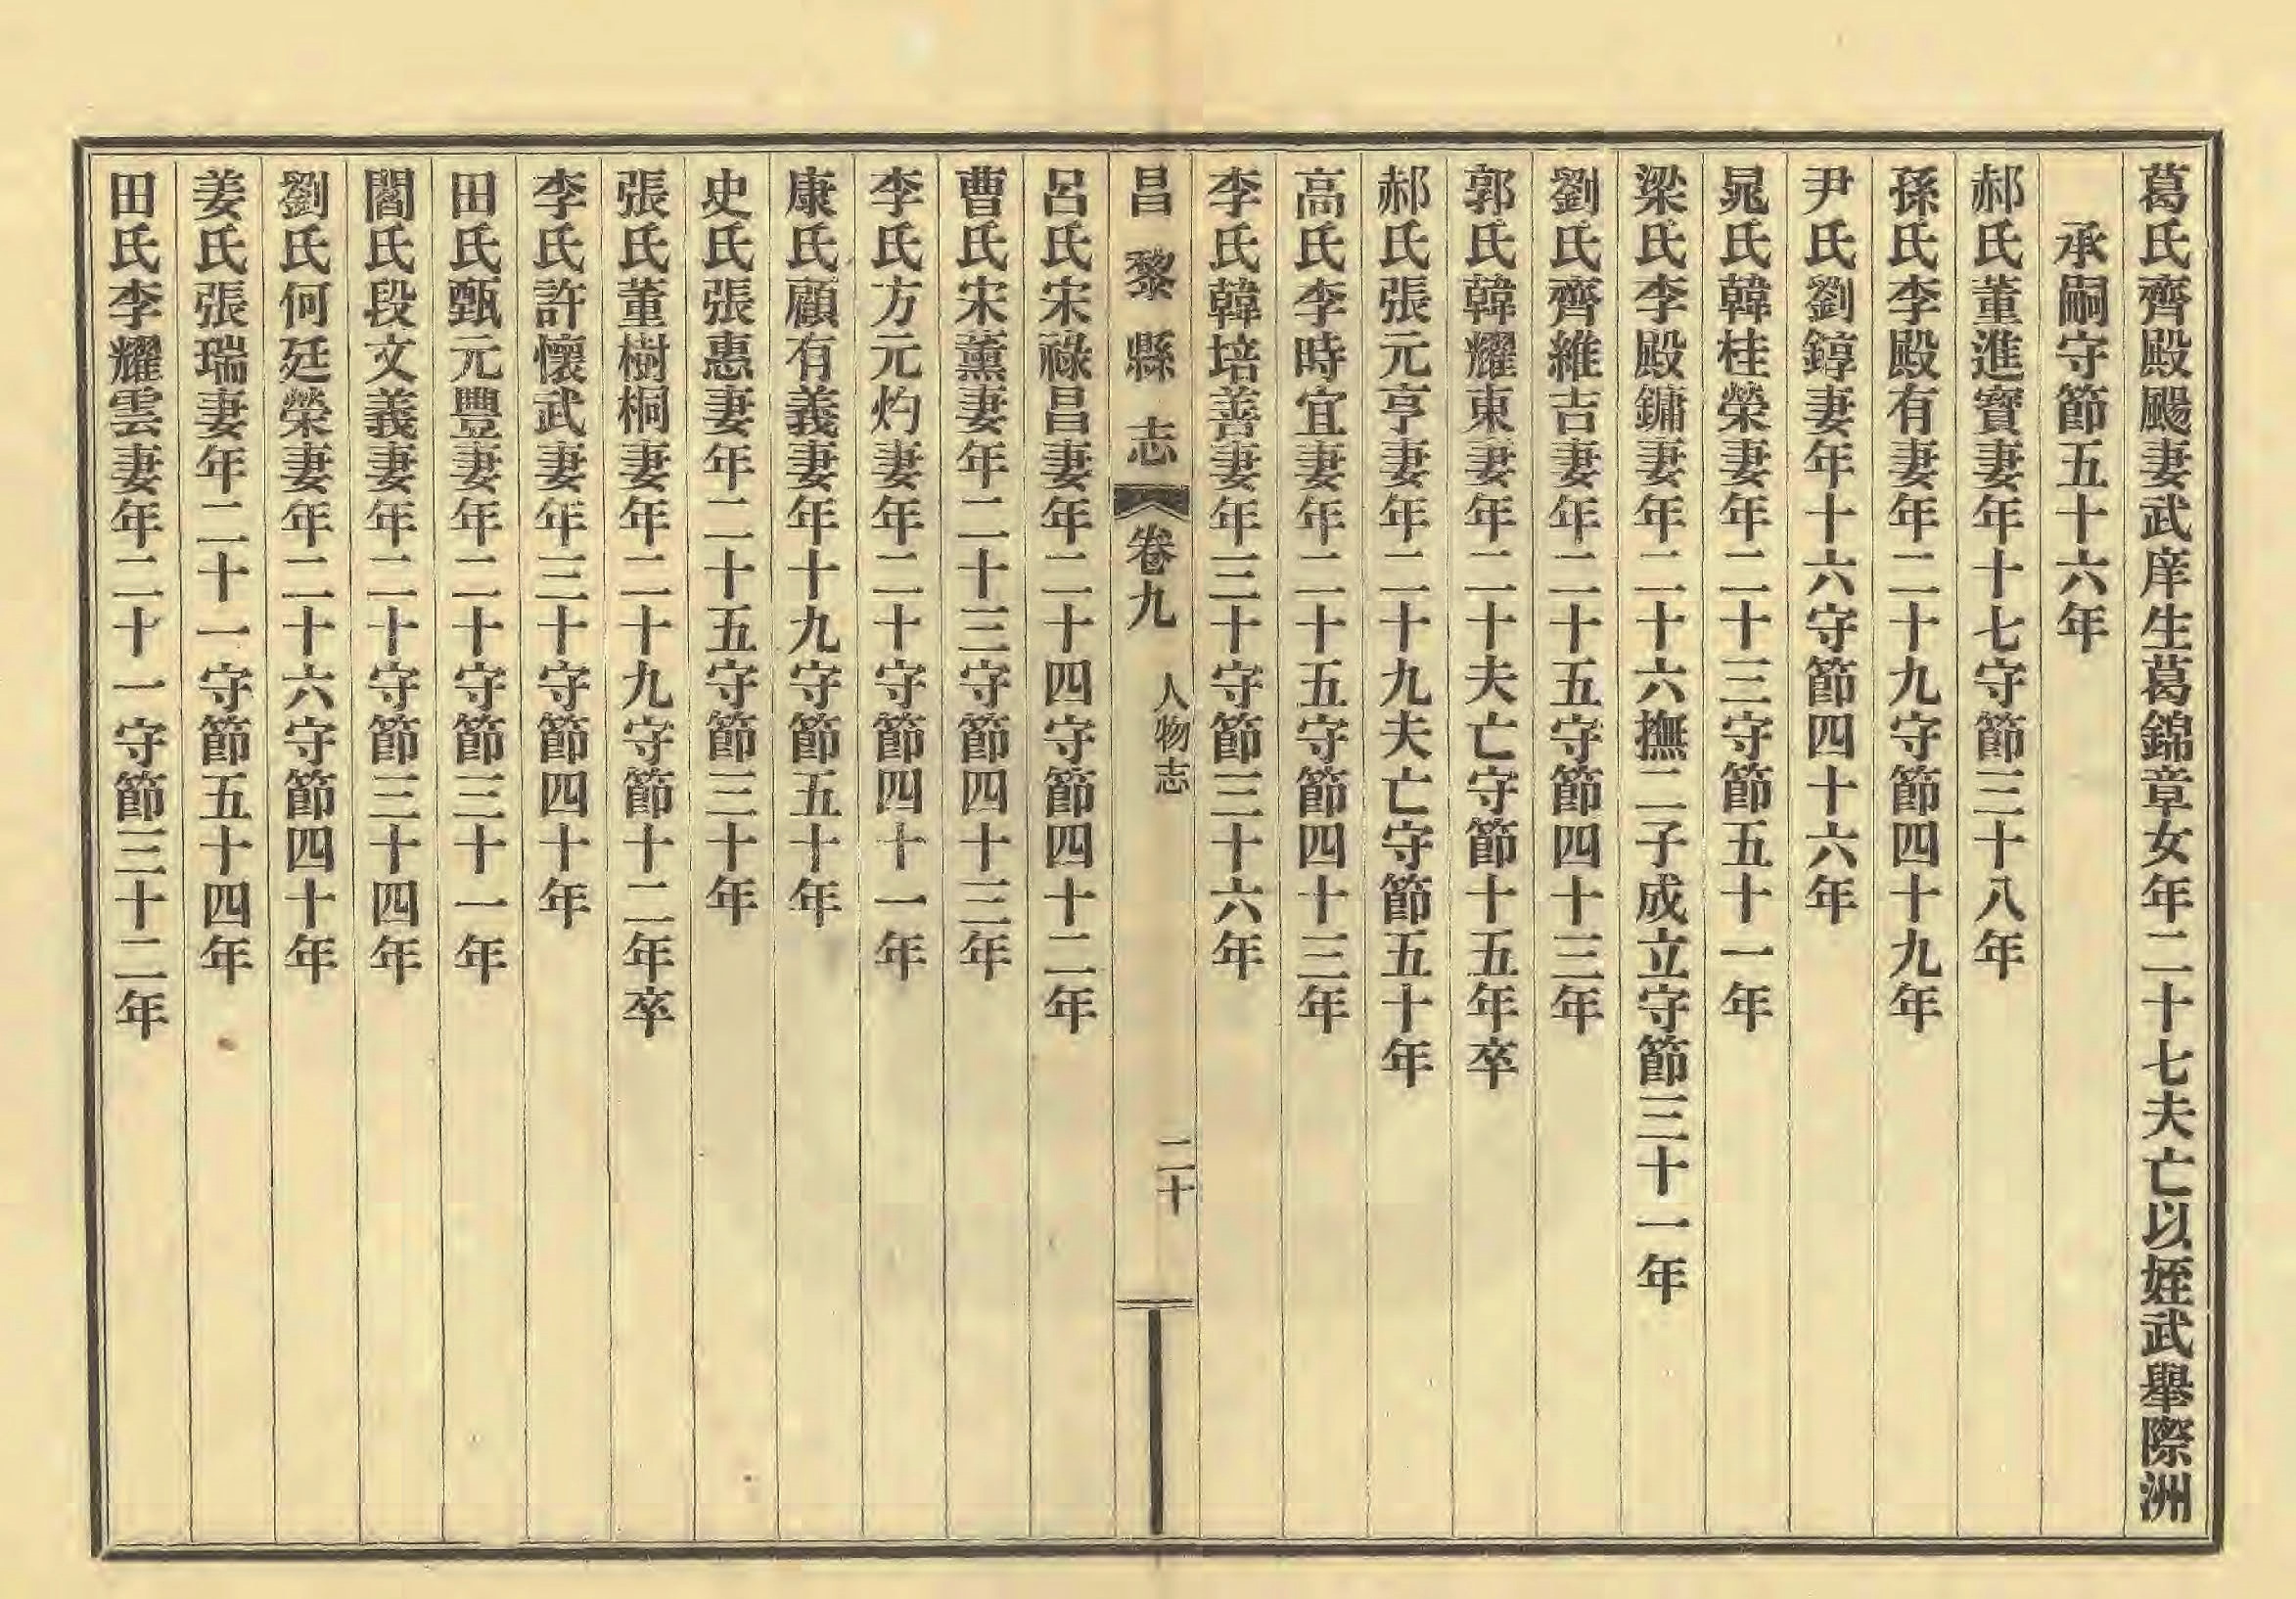 葛氏齊殿颺妻武庠生葛錦章女年二十七夫亡以姪武舉際洲
承嗣守節五十六年
郝氏董進寶妻年十七守節三十八年
孫氏李殿有妻年二十九守節四十九年
尹氏劉錞妻年十六守節四十六年
晁氏韓桂榮妻年二十三守節五十一年
梁氏李殿鏞妻年二十六撫二子成立守節三十一年
劉氏齊維吉妻年二十五守節四十三年
郭氏韓耀東妻年二十夫亡守節十五年卒
郝氏張元亨妻年二十九夫亡守節五十年
高氏李時宜妻年二十五守節四十三年
李氏韓培善妻年三十守節三十六年
昌黎縣志 卷九 人物志 二十
呂氏宋祿昌妻年二十四守節四十二年
曹氏宋薰妻年二十三守節四十三年
李氏方元灼妻年二十守節四十一年
康氏顧有義妻年十九守節五十年
史氏張惠妻年二十五守節三十年
張氏董樹桐妻年二十九守節十二年卒
李氏許懷武妻年三十守節四十年
田氏甄元豐妻年二十守節三十一年
閻氏段文義妻年二十守節三十四年
劉氏何廷榮妻年二十六守節四十年
姜氏張瑞妻年二十一守節五十四年
田氏李耀雲妻年二十一守節三十二年